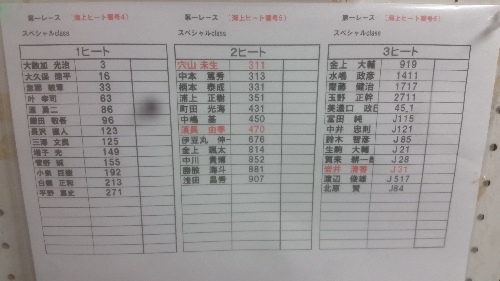 第一レース （海上ヒート番号4）
スペシャルclass
1ヒート
3
大久保 徳平 16
33
叶 幸司 63
86
96
長沢 123
三澤 文 125
増子 光 149
菅野 誠 155
小泉 192
白櫃 正和 213
平野 271
第一レース （海上ヒート番号5）
スペシャルclass
2ヒート
穴山 未生 311
中本 篤秀 313
柄本 泰成 331
浦上 正樹 351
町田 光海 431
中嶋 基 450
470
伊豆丸 伸一 676
金上 颯太 814
中川 貴博 852
勝股 海斗 881
浅田 昌秀 907
第一レース （海上ヒート番号6）
スペシャルclass
3ヒート
金上 大輔 919
水嶋 政彦 1411
齋藤 健治 1717
玉野 正幹 2711
美濃口 政 45.1
富田 純 J115
中井 忠則 J121
鈴木 智彦 J85
生駒 大輔 J21
賀来 耕一 J28
岩井 J31
渡辺 俊雄 J517
北原 賀 J84